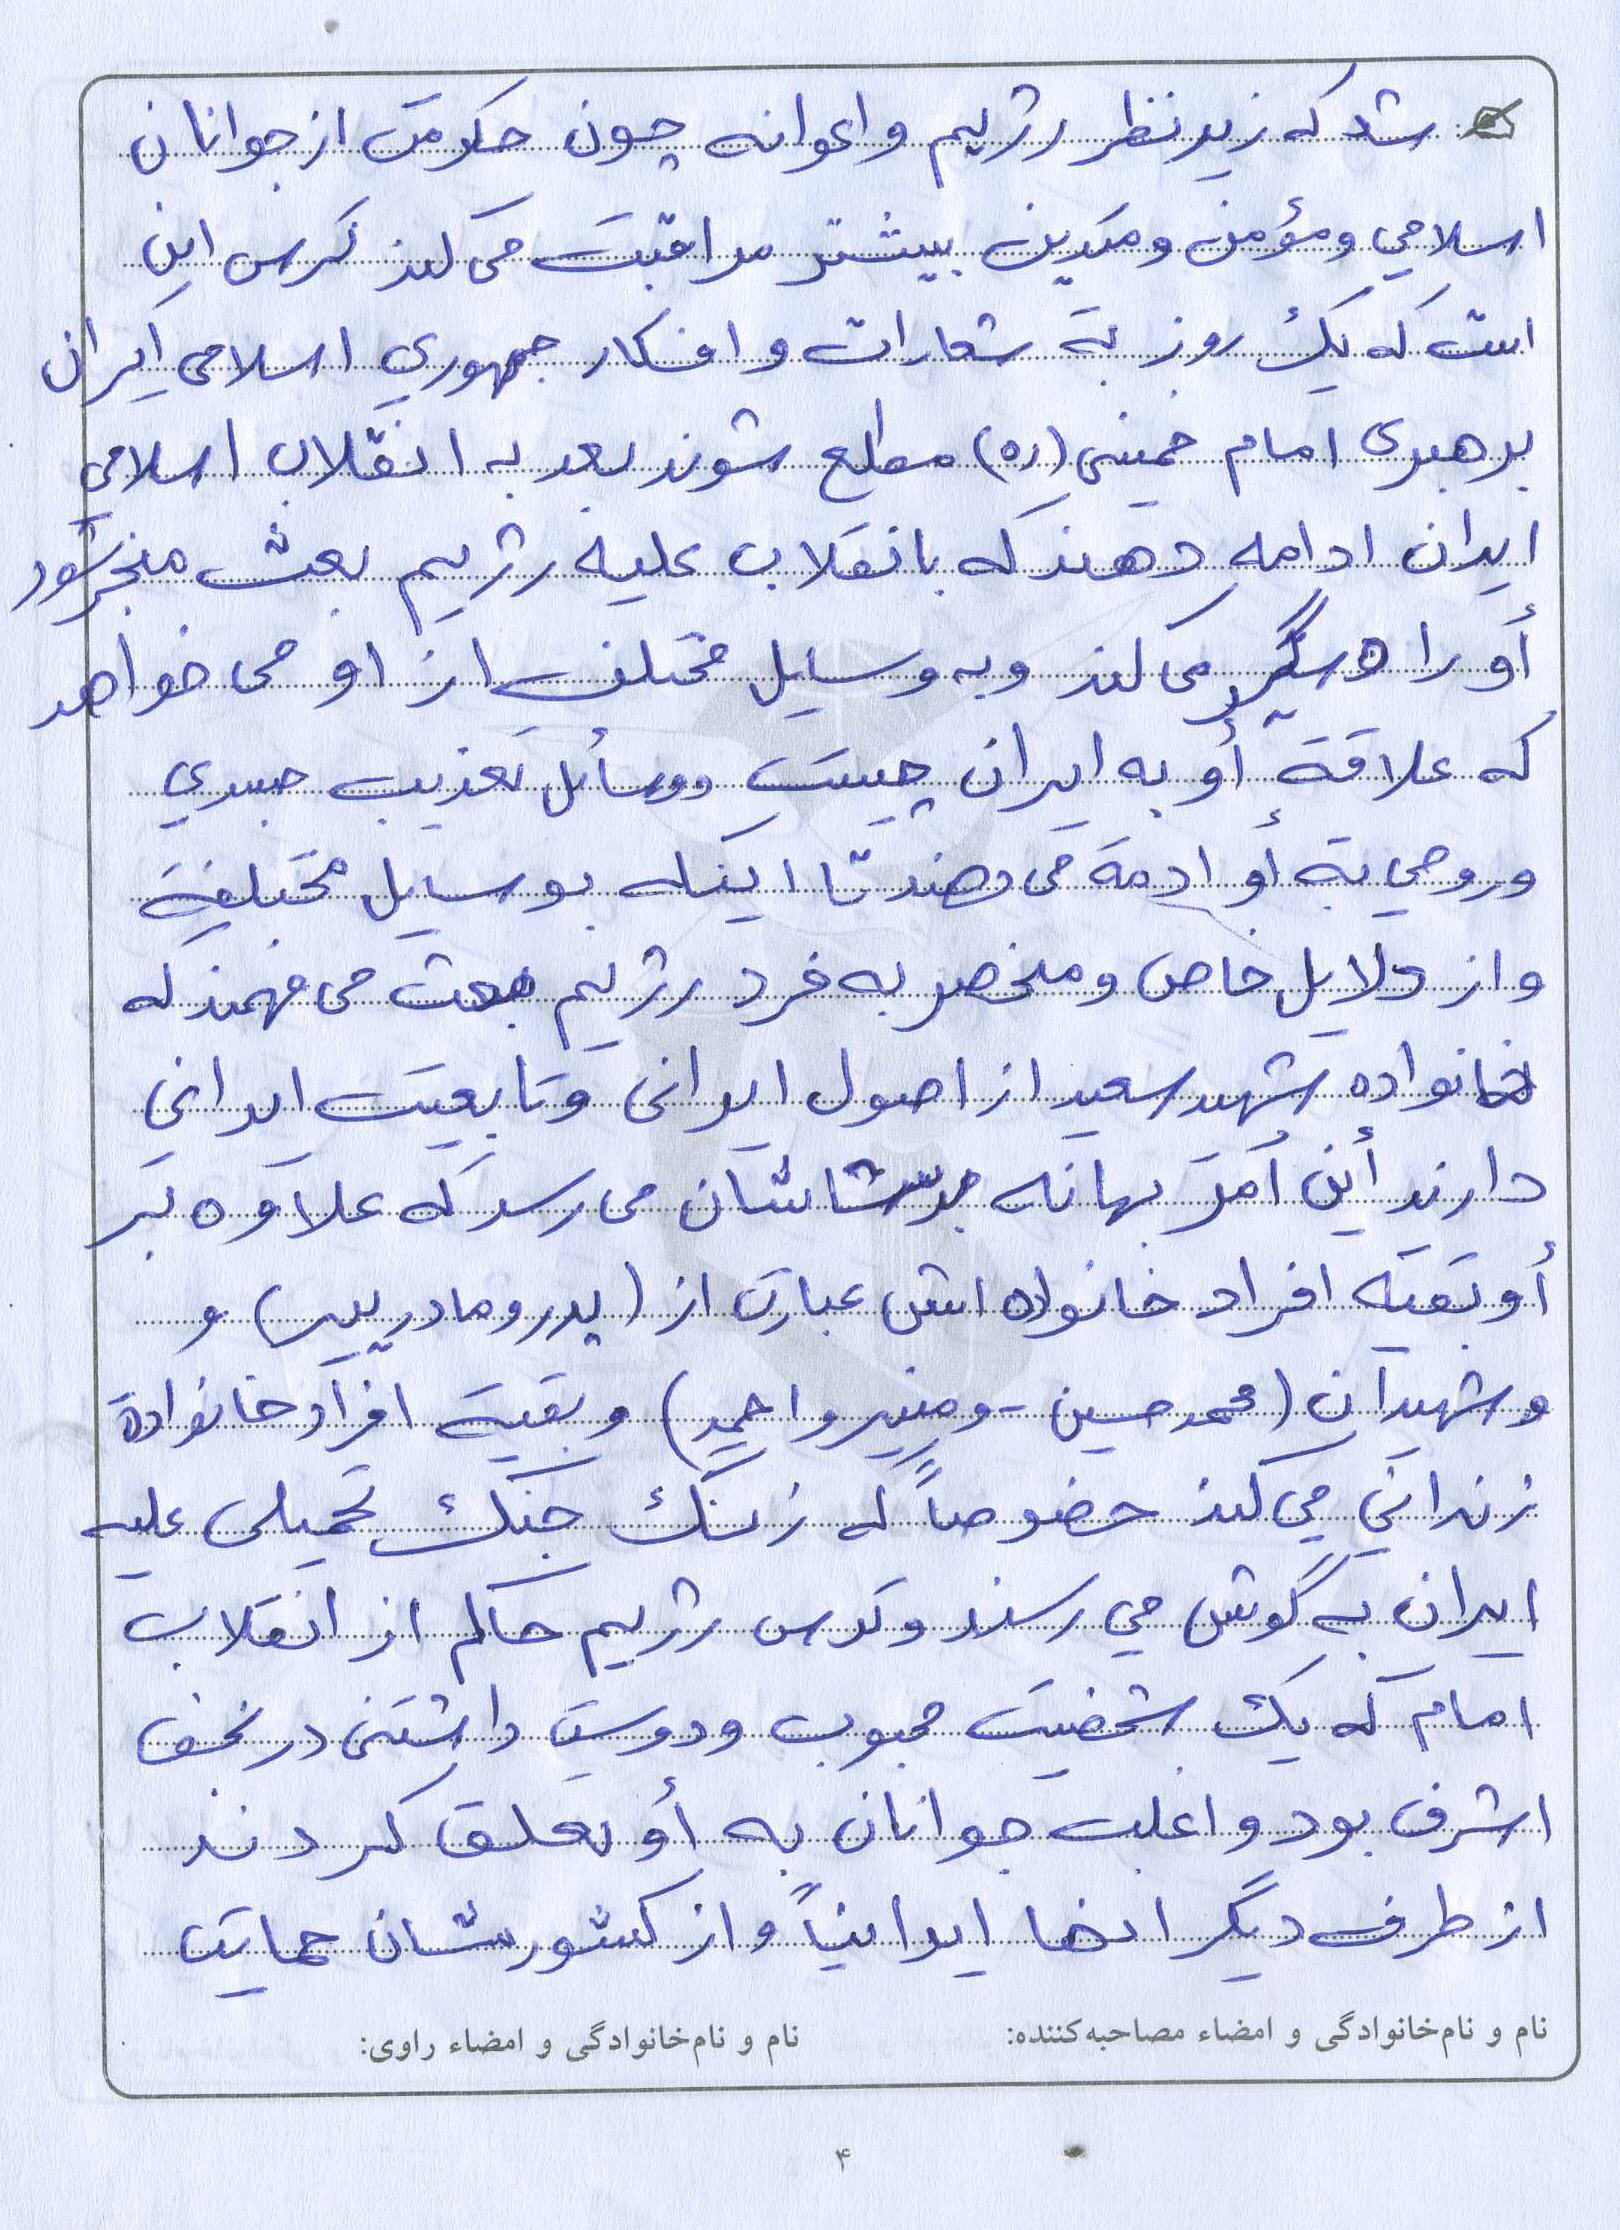 شد که زیر نظر رژیم و اعوانه چون حکومت از جوانان
اسلامي و مؤمن و متدین بیشتر مراقبت می کند ترس این
است که یک روز به شعارات و افکار جمهوري اسلامی ایران
برهبری امام خمینی (ره) مطلع شوند بعد به انقلاب اسلامي
ایران ادامه دهند که بانقلاب علیه رژیم بعث منجر شود
أو را دستگیر می کند و به وسایل مختلف از او می خواهد
که علاقة أو به ایران چیست ووسائل تعذیب جسدي
وروحي به أو ادمة می دهند تا اینکه بوسایل مختلفة
و از دلایل خاص و منحصر به فرد رژیم بعث می فهمند که
خانواده شهید سعید از اصول ایرانی و تابعیت ایراني
دارند أین أمر بهانه بدستشان می رسد که علاوه بر
أو بقیه افراد خانواده اش عبارت از (پدر و مادر پیر) و
و شهیدان (محمد حسین - و منیر و احمید) و بقیة افراد خانوادة
زنداني مي کند خصوصاً که زنگ جنگ تحمیلی علیه
ایران به گوش مي رسند و ترس رژیم حاکم از انقلاب
امام که یک شخصیت محبوب و دوست داشتنی در نجف
اشرف بود و اغلب جوانان به أو تعلق کردند
از طرف دیگر ایرانیاً و از کشورشان حمایت
نام و نام‌خانوادگی و امضاء مصاحبه‌کننده: نام و نام‌خانوادگی و امضاء راوی:
۴